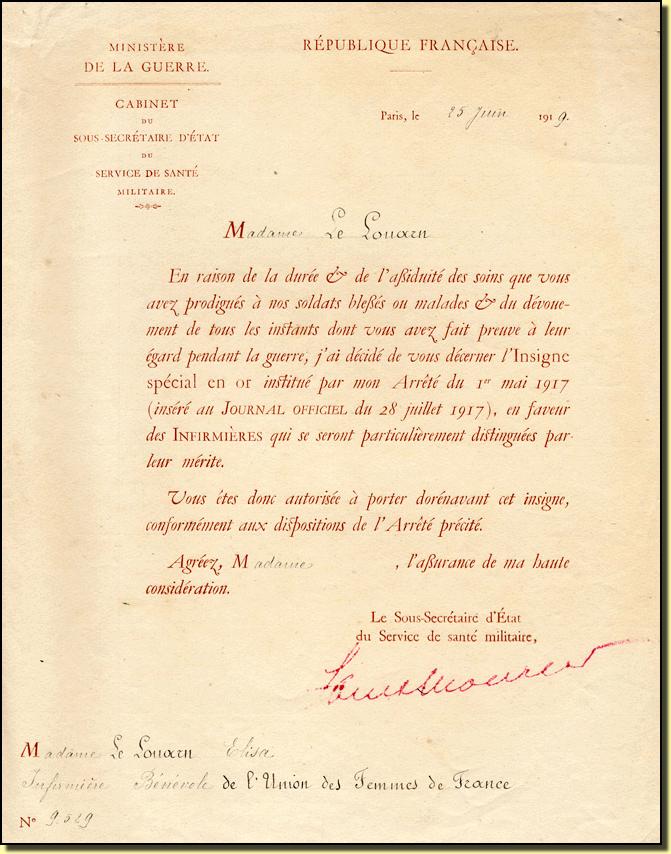 MINISTÈRE
DE LA GUERRE.
CABINET
DU
SOUS-SECRÉTAIRE D'ÉTAT
DU
SERVICE DE SANTÉ
MILITAIRE.
RÉPUBLIQUE FRANÇAISE.
Paris, le 25 Juin 1919.
Madame Le Louarn
En raison de la durée & de l'assiduité des soins que vous
avez prodigués à nos soldats blessés ou malades & du dévoue-
ment de tous les instants dont vous avez fait preuve à leur
égard pendant la guerre, j'ai décidé de vous décerner l'Insigne
spécial en or institué par mon Arrêté du 1er mai 1917
(inséré au JOURNAL OFFICIEL du 28 juillet 1917), en faveur
des INFIRMIÈRES qui se seront particulièrement distinguées par
leur mérite.
Vous êtes donc autorisée à porter dorénavant cet insigne,
conformément aux dispositions de l'Arrêté précité.
Agréez, Madame , l'assurance de ma haute
considération.
Le Sous-Secrétaire d'État
du Service de santé militaire,
Madame Le Louarn Elisa
Infirmière Bénévole de l'Union des Femmes de France
N° 9.529